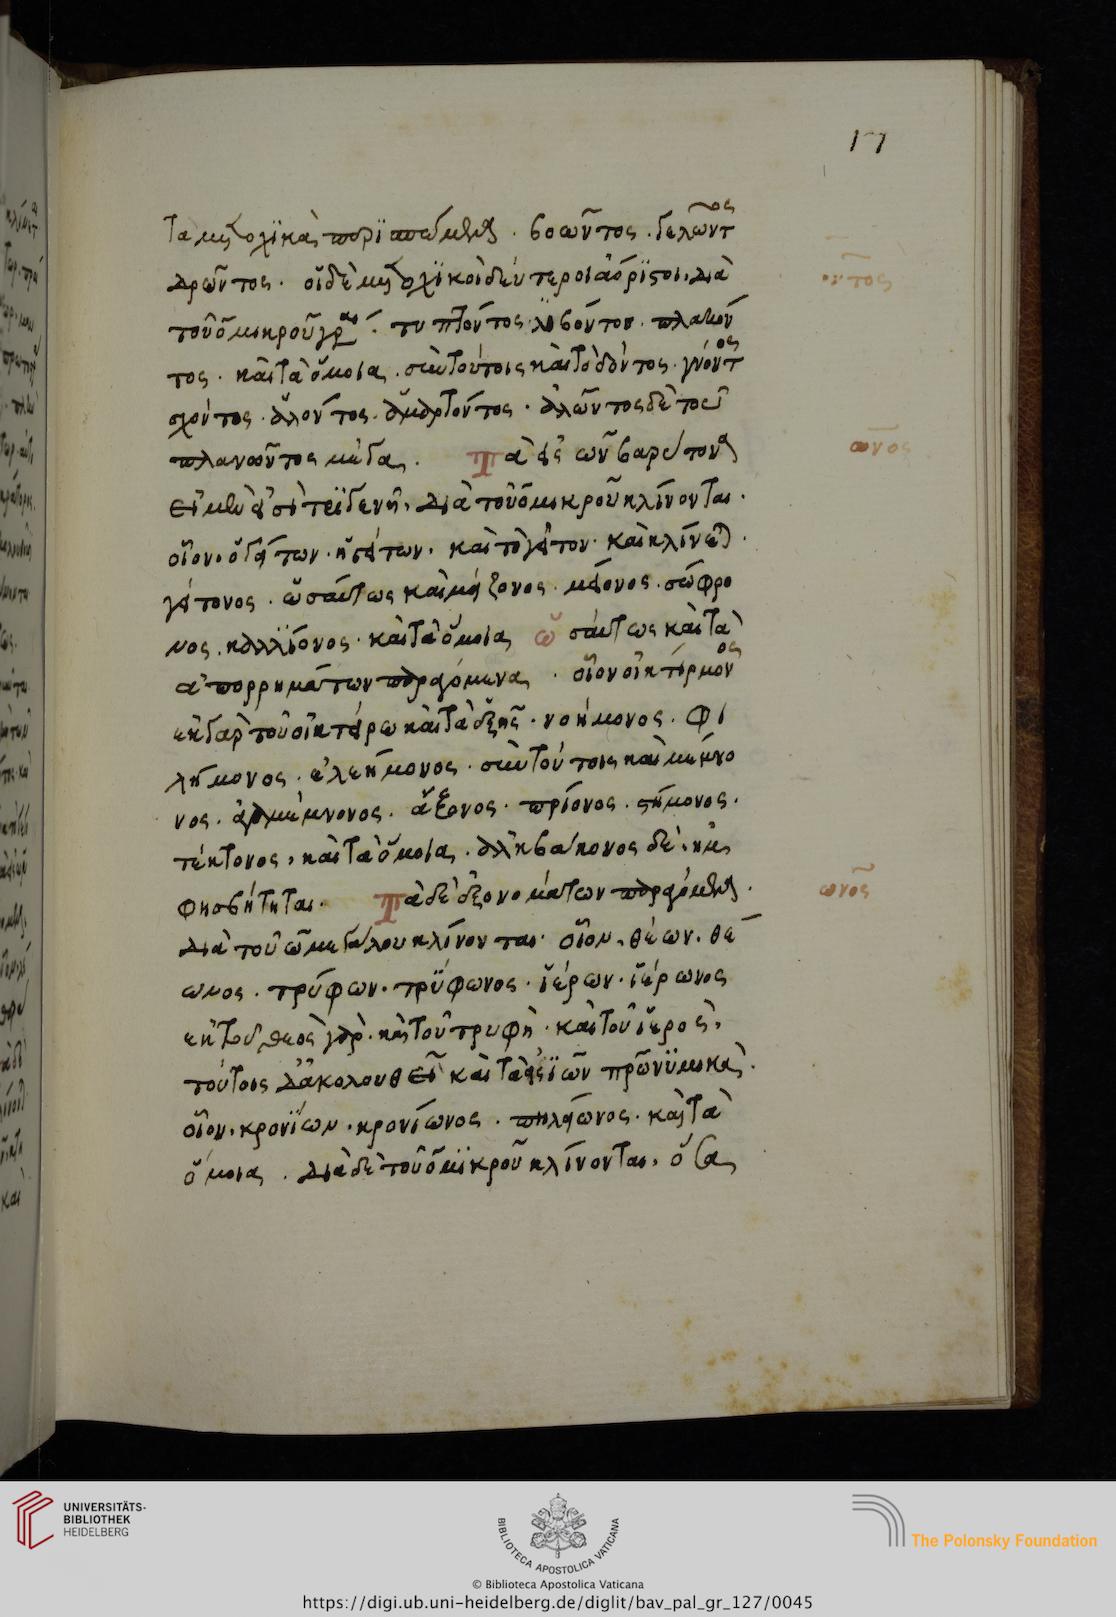 17
τα μετοχικὰ περισπώμενα. βοῶντος. γελῶντος
δρῶντος. οἱ δὲ μετοχικοὶ δεύτεροι ἀόριστοι, διὰ
τοῦ ὁ μικροῦ γρ τυπόντος λαβόντος. πλακόν
τος. καὶ τὰ ὅμοια. σὺν τούτοις καὶ τὸ δόντος. γνόντος
σχόντος. ἁλόντος. ἁμαρτόντος. ἁλῶντος δὲ τοῦ
πλανῶντος μέγα. Τὰ εἰς ων βαρύτονα
εἰ μὲν εἰσὶ τϊ γένη, διὰ τοῦ ὁ μικροῦ κλίνονται.
οἷον. ὁ γείτων. ἡ γείτων. καὶ τὸ γεῖτον. καὶ κλίνεται.
γείτονος. ὡσαύτως καὶ μείζονος. μείονος. σώφρο
νος. καλλϊονος. καὶ τὰ ὅμοια ὡσαύτως καὶ τὰ
ἀπὸ ρρημάτων παραγόμενα. οἷον οἰκτίρμονος
ἐκ γὰρ τοῦ οἰκτείρω καὶ τὰ ἑξῆς. νοήμονος. φι
λήμονος. ἐλεήμονος. σὺν τούτοις καὶ μέμνο
νος. ἀγαμέμνονος. ἄξονος. πρίονος. στήμονος.
τέκτονος, καὶ τὰ ὅμοια. ἁλκβάκονος δὲ, ἠμ
φησβήτηται. Τὰ δὲ ἐξ ὀνομάτων παραγόμενα.
διὰ τοῦ ὦ μεγάλου κλίνονται. οἷον. θέων. θέ
ωνος. τρύφων. τρύφωνος. ἱέρων. ἱέρωνος
ἐκ τοῦ θεὸς γὰρ. καὶ τοῦ τρυφὴ. καὶ τοῦ ἱερὸς.
τούτοις ἀκολουθεῖ καὶ τὰ εἰς ϊων πρωνϋμικὰ.
οἷον. κρονϊων. κρονίωνος. πηλείωνος. καὶ τὰ
ὅμοια. διὰ δὲ τοῦ ὁ μϊκροῦ κλίνονται. ὅσα
οντος
ωνος
ωνος
UNIVERSITÄTS-
BIBLIOTHEK
HEIDELBERG
BIBLIOTECA APOSTOLICA VATICANA
© Biblioteca Apostolica Vaticana
The Polonsky Foundation
https://digi.ub.uni-heidelberg.de/diglit/bav_pal_gr_127/0045